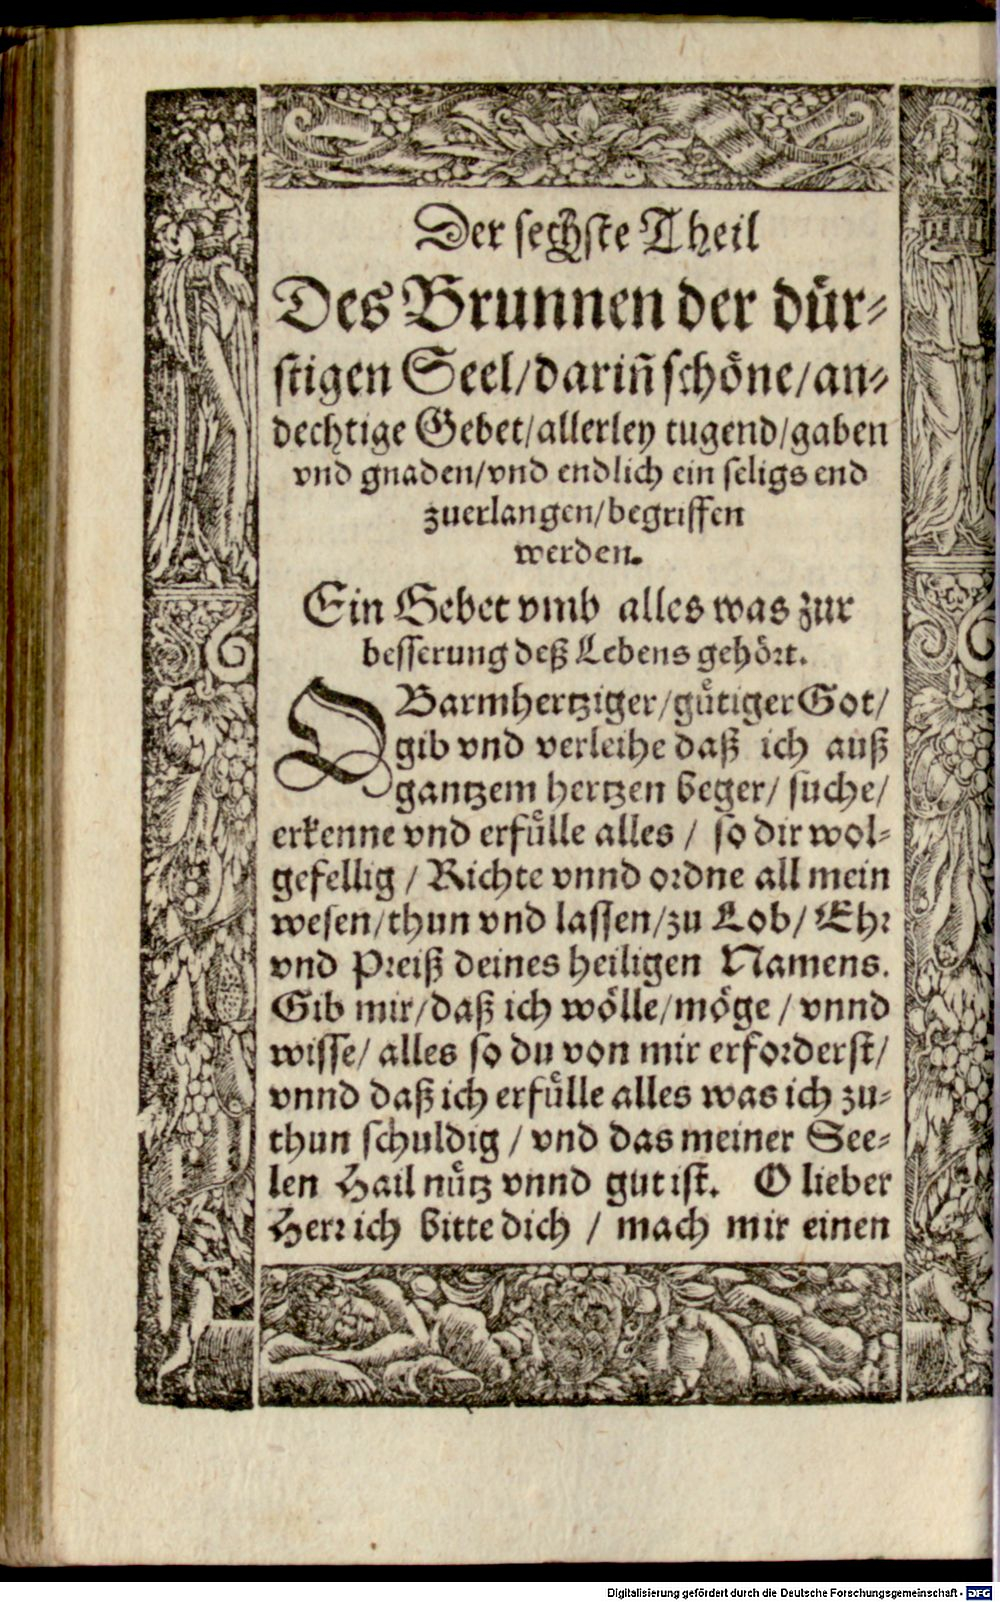 Der sechste Theil
Des Brunnen der dür⸗
stigen Seel/darin̄ schöne/an⸗
dechtige Gebet/allerley tugend/gaben
vnd gnaden/vnd endlich ein seligs end
zuerlangen/begriffen
werden.
Ein Gebet vmb alles was zur
besserung deß Lebens gehört.
O Barmhertziger/gütiger Got/
gib vnd verleihe daß ich auß
gantzem hertzen beger/ suche/
erkenne vnd erfülle alles / so dir wol⸗
gefellig / Richte vnnd ordne all mein
wesen/thun vnd lassen/zu Lob/ Ehr
vnd Preiß deines heiligen Namens.
Gib mir/daß ich wölle/möge / vnnd
wisse/ alles so du von mir erforderst/
vnnd daß ich erfülle alles was ich zu⸗
thun schuldig / vnd das meiner See⸗
len Hail nütz vnnd gut ist. O lieber
Herr ich bitte dich / mach mir einen
Digitalisierung gefördert durch die Deutsche Forschungsgemeinschaft - DFG